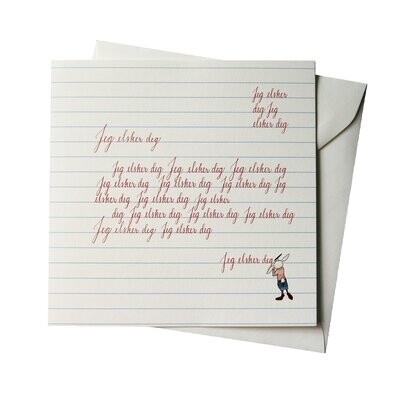 Jeg elsker
dig Jeg
elsker dig
Jeg elsker dig
Jeg elsker dig Jeg elsker dig Jeg elsker dig
Jeg elsker dig Jeg elsker dig Jeg elsker dig Jeg
elsker dig Jeg elsker dig Jeg elsker
dig Jeg elsker dig Jeg elsker dig Jeg elsker dig
Jeg elsker dig Jeg elsker dig
Jeg elsker dig